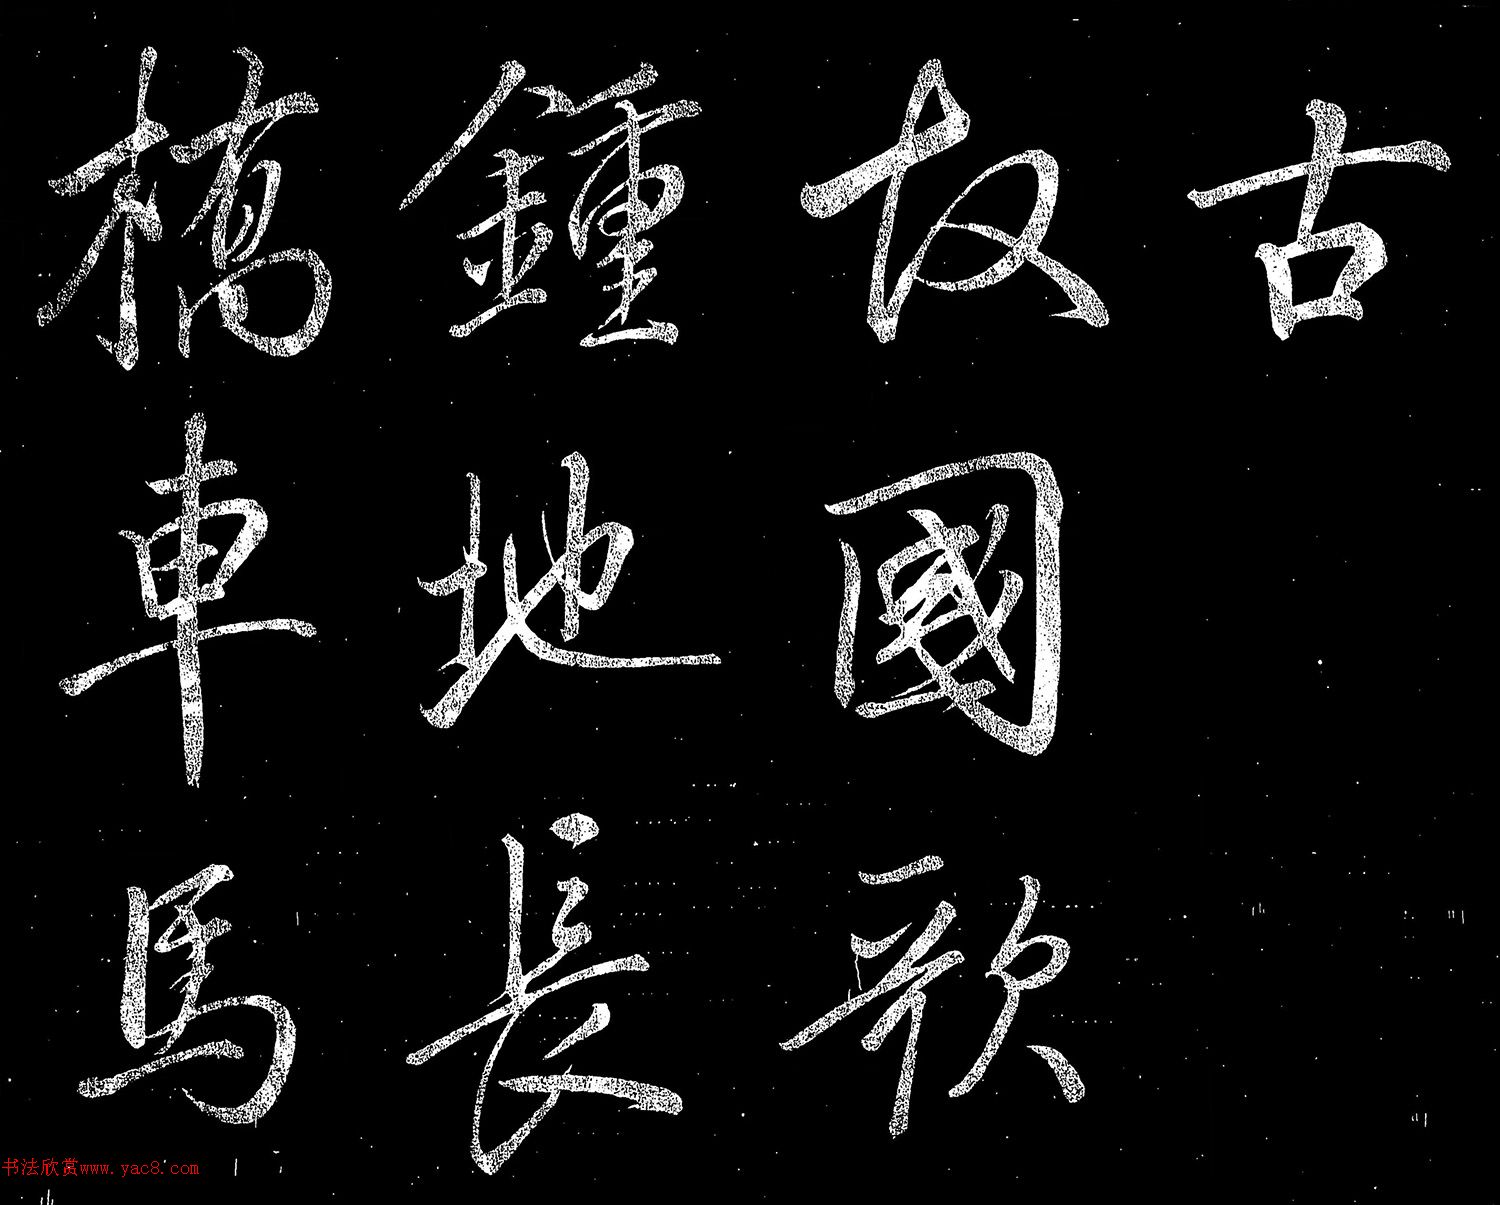 古
故國歌
鍾地長
橋車馬
书法欣赏www.yac8.com